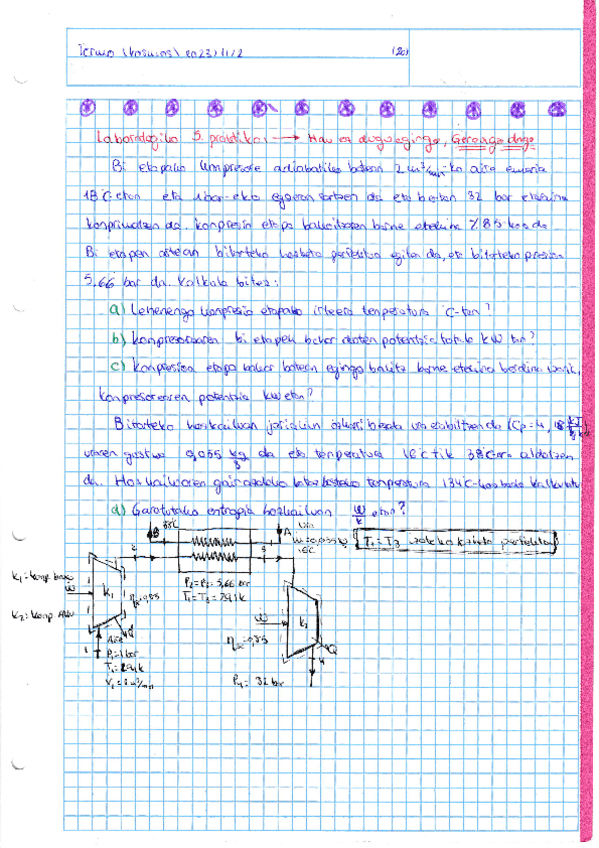 Termo (Kosmos) 2023/11/2 (20)
Laborategiko 5. praktika: → Hau ez dugu egingo, Gerorago dugu
Bi etapako konpresore adiabatiko batean 2 m³/min-ko aire emaria
18°C-tan eta 1 bar-eko egoeran sartzen da eta bertan 32 bar etaraino
konprimatzen da. Konpresio etapa bakoitzaren barne etekina %85 koa da
Bi etapen artean bitarteko hozketa perfektua egiten da, eta bitarteko presioa
5,66 bar da. Kalkula bitez:
a) Lehenengo konpresio etapako irteera tenperatura °C-tan?
b) Konpresorearen bi etapek behar duten potentzia totala kW tan?
c) Konpresioa etapa bakar batean egingo balitz barne etekina berdina izanik,
konpresorearen potentzia kW etan?
Bitarteko hozkailuan jariakin hozgarri bezala ura erabiltzen da (Cp=4,18 kJ/kg K)
uraren gastua 0,055 kg/s da eta tenperatura 16°C tik 38°C-ra aldatzen
da. Hozkailuaren gainazaleko batez besteko tenperatura 134°C-koa bada kalkulatu
d) Garatutako entropia hozkailuan W/K etan?
38°C
B
A
ura
ṁ=0,055 kg/s
16°C
T₁ = T₃ izateko hozketa perfektua
2
3
P₂=P₃=5,66 bar
T₁=T₃=291K
K₁=konp. baxu
K₂=konp. Altu
W
K₁
η=0,85
Q
Airea
1
P₁=1 bar
T₁=291K
V₁=2 m³/min
W
η=0,85
K₁
Q
4
P₄= 32 bar